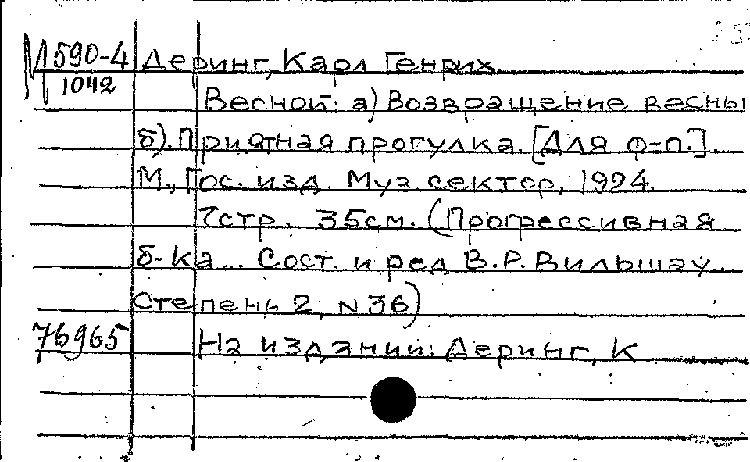 М 590-4 Деринг, Карл Генрих
1042
Весной: а) Возвращение весны
б). Приятная прогулка. [Для ф-п.].
М., Гос. изд. Муз. сектор, 1924.
7стр. 35см. (Прогрессивная
б-ка... Сост. и ред В.Р. Вильшау.
Степень 2, N 36)
76965 На издании: Деринг, К